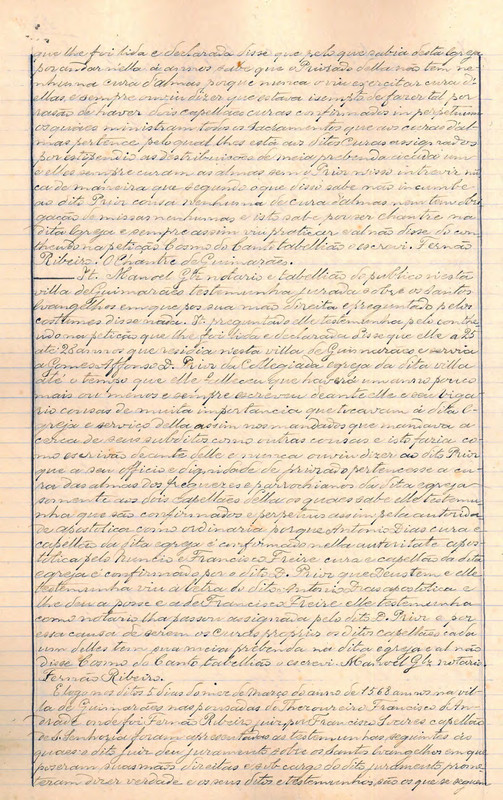 que lhe foi lida e declarada disse que pelo que sabia desta Igreja
por andar nella d'annos sabe que o Priorado della não tem ne-
nhuma cura d'almas porque nunca o viu exercitar cura d'
ellas e sempre ouviu dizer que estava isempto de fazer tal por
rasão de haver dois capellães curas confirmados in perpetuum
os quaes ministram todos os Sacramentos que aos curas d'al-
mas pertence pelo qual lhes está aos ditos Curas assignados
por estipendio as destribuições de meia prebenda a cada um
e elles sempre curam as almas sem o Prior nisso intrevir nun-
ca de maneira que segundo o que disso sabe não incumbe
ao dito Prior cousa nenhuma de cura d'almas nem tem obri-
gação de missas nenhumas e isto sabe por ser chantre na
dita Igreja e sempre assim viu praticar e al não disse do con-
theudo na petição Cosmo do Canto tabellião o escrevi. Fernão
Ribeiro. O Chantre de Guimarães.
It. Manoel Glz notario e tabellião do publico n'esta
villa de Guimarães testemunha jurada sobre os Santos
Evangelhos em que poz sua mão direita e preguntado pelos
costumes disse nada. It. preguntado elle testemunha pelo conthe-
udo na petição que lhe foi lida e declarada disse que elle a 25
até 28 annos que residia n'esta villa de Guimarães e serviu
a Gomes Affonso D. Prior da Collegiada egreja da dita villa
até o tempo que elle falleceu que haverá um anno pouco
mais ou menos e sempre escreveu deante elle e seu Viga-
rio cousas de muita importancia que tocavam á dita E-
greja e serviço della assim nos mandados que mandava a-
cerca de seus subditos como outras cousas e isto fazia co-
mo escrivão deante delle e nunca ouviu dizer ao dito Prior
que a seu officio e dignidade de priorado pertencesse a cu-
ra das almas dos freguezes e parrochianos da dita egreja
somente aos dois Capellães della os quaes sabe elle testemu-
nha que são confirmados e perpetuos assim pela autorida-
de apostolica como ordinaria porque Antonio Dias cura e
capellão da dita egreja é confirmado nella autoritate apos-
tolica pelo Nuncio e Francisco Freire cura e capellão da dita
egreja é confirmado por o dito D. Prior que Deus tem e elle
testemunha viu a letra do dito Antonio Dias apostolica e
lhe deu a posse e a de Francisco Freire elle testemunha
como notario lha passou assignada pelo dito D. Prior e por
essa causa de serem os curas proprios os ditos capellães cada
um delles tem sua meia prebenda na dita egreja e al não
disse Cosmo do Canto tabellião o escrevi. Manoel Glz notario
Fernão Ribeiro.
E logo nos ditos 5 dias do mez de Março do anno de 1568 annos na vil-
la de Guimarães nas pousadas do Thezoureiro Francisco d'An-
drade onde foi Fernão Ribeiro juiz por Francisco Soares capellão
de S. Senhoria foram apresentados as testemunhas seguintes aos
quaes o dito juiz deu juramento sobre os Santos Evangelhos em que
pozeram suas mãos direitas e sob cargo do dito juramento prome-
teram dizer verdade e os seus ditos e testemunhos são os que se seguem